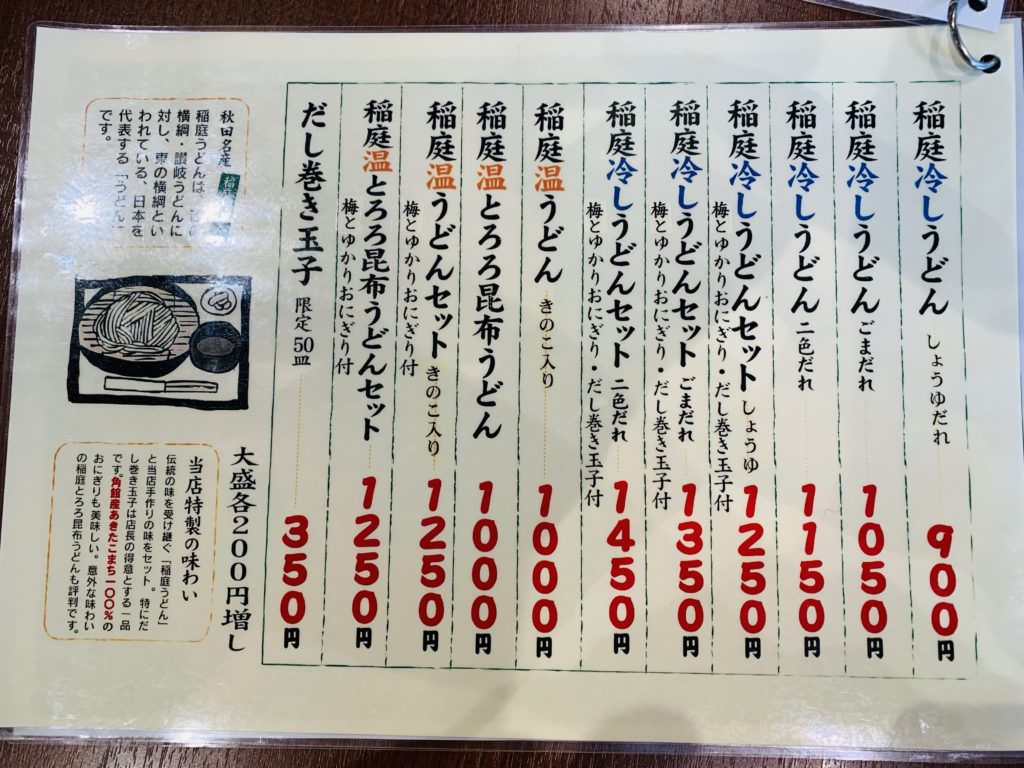 稲庭冷しうどん しょうゆだれ 900円
稲庭冷しうどん ごまだれ 1050円
稲庭冷しうどん 二色だれ 1150円
稲庭冷しうどんセット しょうゆ 1250円
梅とゆかりおにぎり・だし巻き玉子付
稲庭冷しうどんセット ごまだれ 1350円
梅とゆかりおにぎり・だし巻き玉子付
稲庭冷しうどんセット 二色だれ 1450円
梅とゆかりおにぎり・だし巻き玉子付
稲庭温うどん きのこ入り 1000円
稲庭温とろろ昆布うどん 1000円
稲庭温うどんセット きのこ入り 1250円
梅とゆかりおにぎり付
稲庭温とろろ昆布うどんセット 1250円
梅とゆかりおにぎり付
だし巻き玉子 限定50皿 350円
大盛各200円増し
秋田名産
稲庭うどんは、
横綱・讃岐うどんに
対し、東の横綱とい
われている、日本を
代表する「うどん」
です。
当店特製の味わい
伝統の味を受け継ぐ「稲庭うどん」
と当店手作りの味をセット。特にだ
し巻き玉子は店長の得意とする一品
です。角館産あきたこまち一〇〇%の
おにぎりも美味しい。意外な味わい
の稲庭とろろ昆布うどんも評判です。